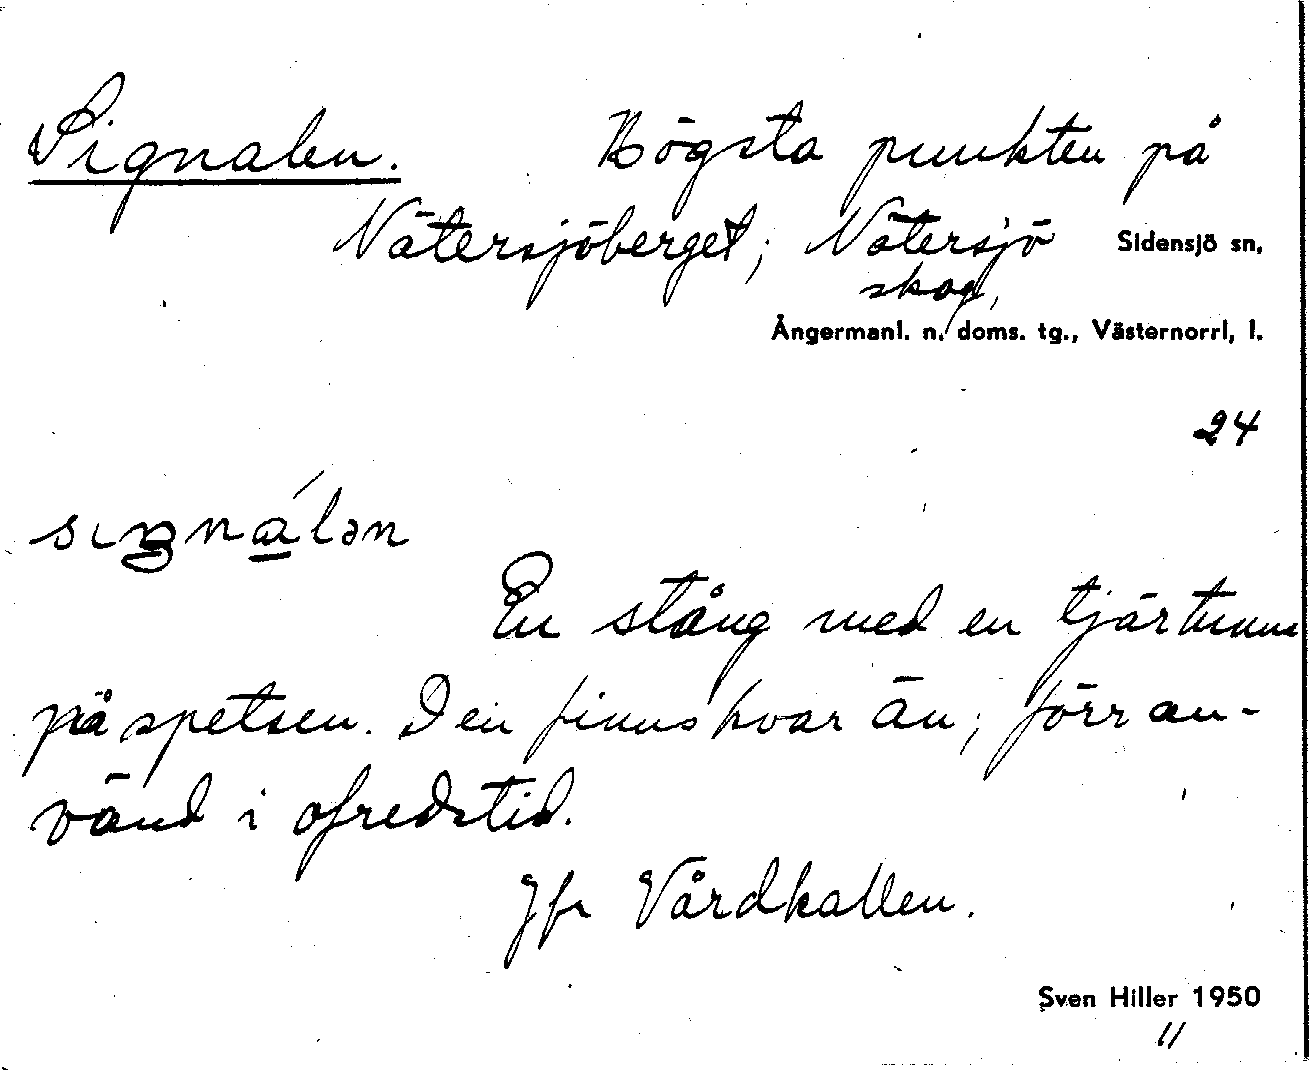 Signalen. Högsta punkten på
Nätersjöberget; Nätersjö Sidensjö sn,
skog,
Ångermanl. n. doms. tg., Västernorrl, l.
24
sıŋnálən
En stång med en tjärtunna
på spetsen. Den finns kvar än; förr an-
vänd i ofredstid.
Jfr Vårdkallen.
Sven Hiller 1950
11